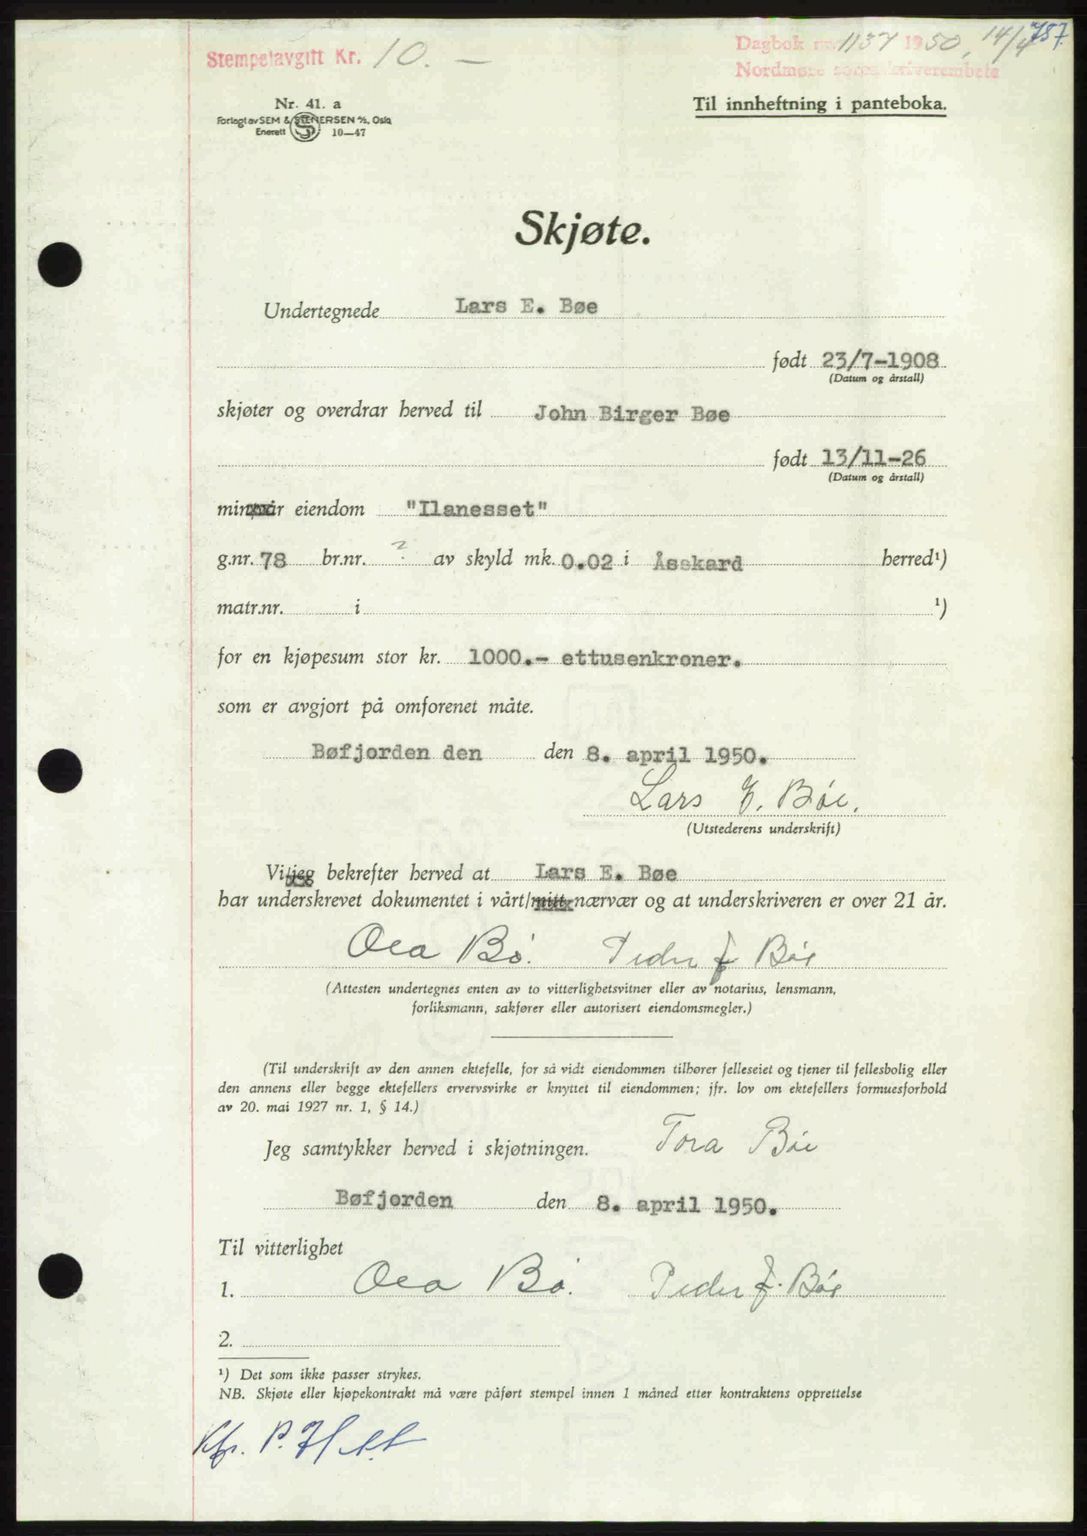 787.
Stempelavgift Kr. 10. —
Dagbok nr. 1137 1950, 14/4
Nordmøre sorenskriverembete
Nr. 41. a
Forlagt av SEM & STENERSEN A/S, Oslo
Enerett 10—47
Til innheftning i panteboka.
Skjøte.
Undertegnede Lars E. Bøe
født 23/7-1908
(Datum og årstall)
skjøter og overdrar herved til John Birger Bøe
født 13/11-26
(Datum og årstall)
min/vår eiendom "Ilanesset"
g.nr. 78 br.nr. ? av skyld mk. 0.02 i Åsskard herred¹)
matr.nr. i ¹)
for en kjøpesum stor kr. 1000.- ettusenkroner.
som er avgjort på omforenet måte.
Bøfjorden den den 8. april 1950.
Lars E. Bøe.
(Utstederens underskrift)
Vi/jeg bekrefter herved at Lars E. Bøe
har underskrevet dokumentet i vårt/mitt nærvær og at underskriveren er over 21 år.
Ola Bø. Peder J Bøe
(Attesten undertegnes enten av to vitterlighetsvitner eller av notarius, lensmann,
forliksmann, sakfører eller autorisert eiendomsmegler.)
(Til underskrift av den annen ektefelle, for så vidt eiendommen tilhører felleseiet og tjener til fellesbolig eller
den annens eller begge ektefellers ervervsvirke er knyttet til eiendommen; jfr. lov om ektefellers formuesforhold
av 20. mai 1927 nr. 1, § 14.)
Jeg samtykker herved i skjøtningen. Tora Bøe
Bøfjorden den 8. april 1950.
Til vitterlighet
1. Ola Bø. Peder J. Bøe
2.
¹) Det som ikke passer strykes.
NB. Skjøte eller kjøpekontrakt må være påført stempel innen 1 måned etter kontraktens opprettelse